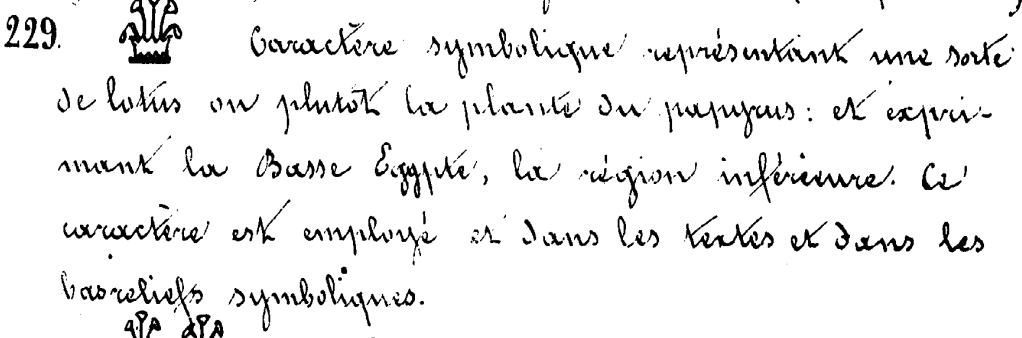 229. Caractère symbolique représentant une sorte
de lotus ou plutôt la plante du papyrus : et expri-
mant la Basse Egypte, la région inférieure. Ce
caractère est employé et dans les textes et dans les
basreliefs symboliques.